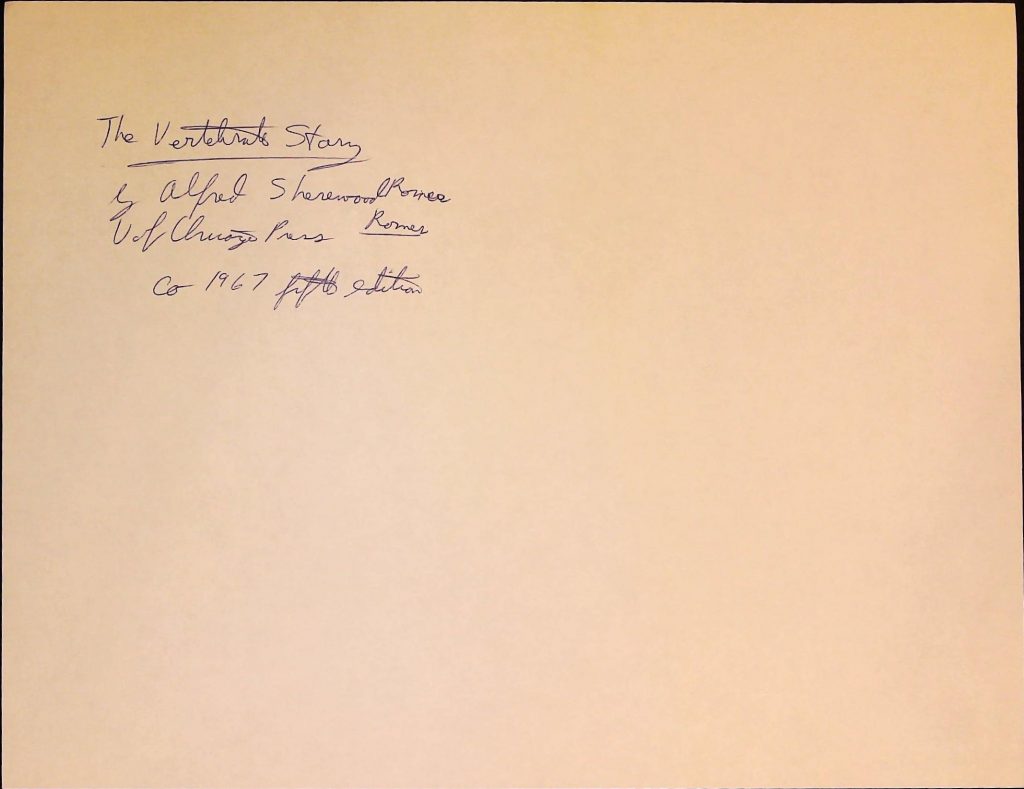 The Vertebrate Story
by Alfred Sherewood Romer
Romer
U of Chicago Press
Co 1967 fifth edition